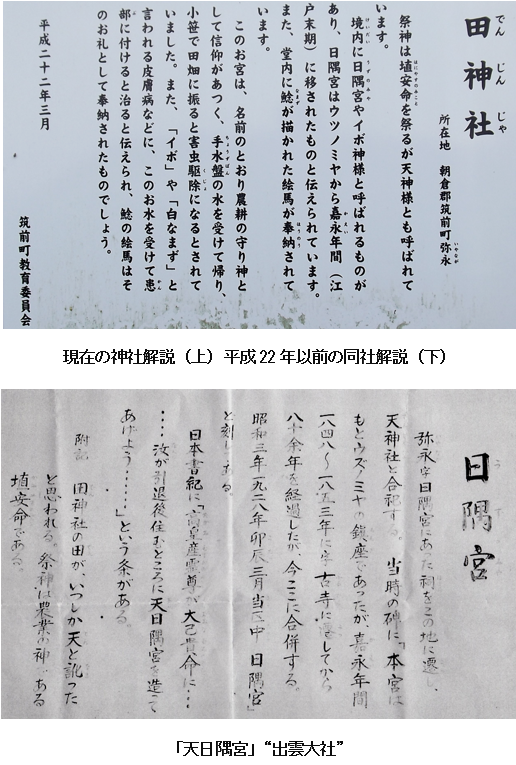 田神社
でんじんじゃ
所在地 朝倉郡筑前町弥永
祭神は埴安命を祭るが天神様とも呼ばれて
います。
境内に日隅宮やイボ神様と呼ばれるものが
あり、日隅宮はウツノミヤから嘉永年間（江
戸末期）に移されたものと伝えられています。
また、堂内に鯰が描かれた絵馬が奉納されて
います。
このお宮は、名前のとおり農耕の守り神と
して信仰があつく、手水盤の水を受けて帰り、
小笹で田畑に振ると害虫駆除になるとされて
いました。また、「イボ」や「白なまず」と
言われる皮膚病などに、このお水を受けて患
部に付けると治ると伝えられ、鯰の絵馬はそ
のお礼として奉納されたものでしょう。
平成二十二年三月
筑前町教育委員会
現在の神社解説（上） 平成22年以前の同社解説（下）
日隅宮
弥永字日隅宮にあった祠をこの地に遷し、
天神社と合祀する。 当時の碑に「本宮は
もとウズノミヤの鎮座であったが嘉永年間
一八四八～一八五三年に字古寺に遷してから
八十余年を経過したが、今ここに合併する。
昭和三年一九二八年卯辰三月当区中 日隅宮」
と刻してある。
日本書紀に「高皇産霊尊が大己貴命に…
…汝が引退後住むところに天日隅宮を造って
あげよう……」という条がある。
附記 田神社の田が、いつしか天と訛った
と思われる。祭神は農業の神である
埴安命である。
「天日隅宮」“出雲大社”